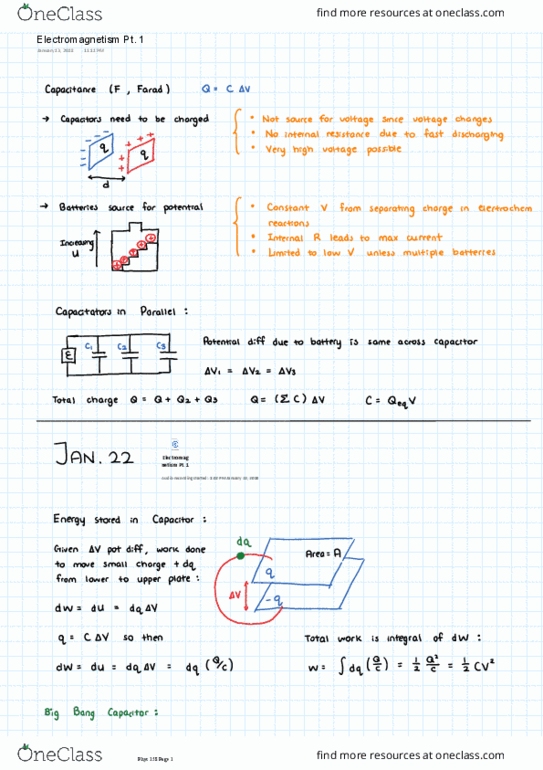 OneClass
find more resources at oneclass.com
Electromagnetism Pt. 1
Capacitance (F, Farad) Q = C ΔV
→ Capacitors need to be charged
• Not source for voltage since voltage changes
• No internal resistance due to fast discharging
• Very high voltage possible
q
q
d
→ Batteries source for potential
• Constant V from separating charge in electrochem
reactions
• Internal R leads to max current
• Limited to low V unless multiple batteries
Increasing
u
Capacitators in Parallel :
ε
C₁
C₂
C₃
Potential diff due to battery is same across capacitor
ΔV₁ = ΔV₂ = ΔV₃
Total charge Q = Q + Q₂ + Q₃ Q = (Σ C) ΔV C = Qeq V
JAN. 22
Electromag
netism Pt. 1
Energy stored in Capacitor :
Given ΔV pot diff, work done
to move small charge + dq
from lower to upper plate :
dq
Area = A
q
ΔV
-q
dw = du = dq ΔV
q = C ΔV so then
dw = du = dq ΔV = dq (Q/C)
Total work is integral of dW :
W = ∫ dq (Q/C) = ½ Q²/C = ½ CV²
Big Bang Capacitor :
OneClass
Phys 158 Page 1
find more resources at oneclass.com